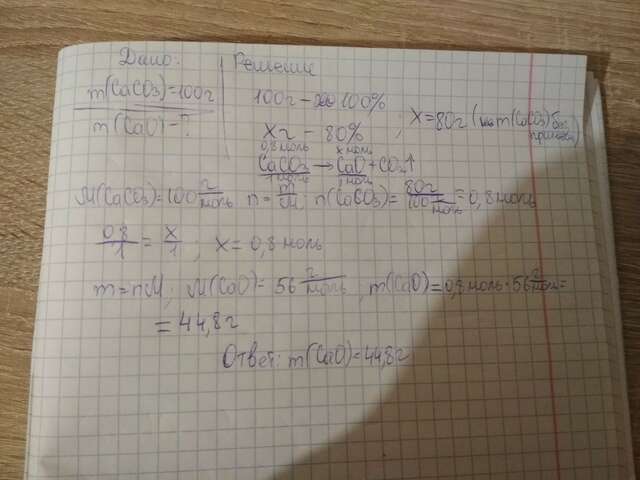 Дано:
Решение
m(CaCO3)=100г
m(CaO)-?
100г - 100%
Xг - 80% ; X=80г ( m(CaCO3) без
примеси)
0,8 моль x моль
CaCO3 → CaO + CO2↑
1 моль 1 моль
M(CaCO3)=100 г/моль n= m/M ; n(CaCO3)= 80г/100 г/моль =0,8 моль
0,8/1 = X/1 ; X=0,8 моль
m=nM; M(CaO)= 56 г/моль ; m(CaO)=0,8 моль · 56 г/моль =
= 44,8 г
Ответ: m(CaO)=44,8г